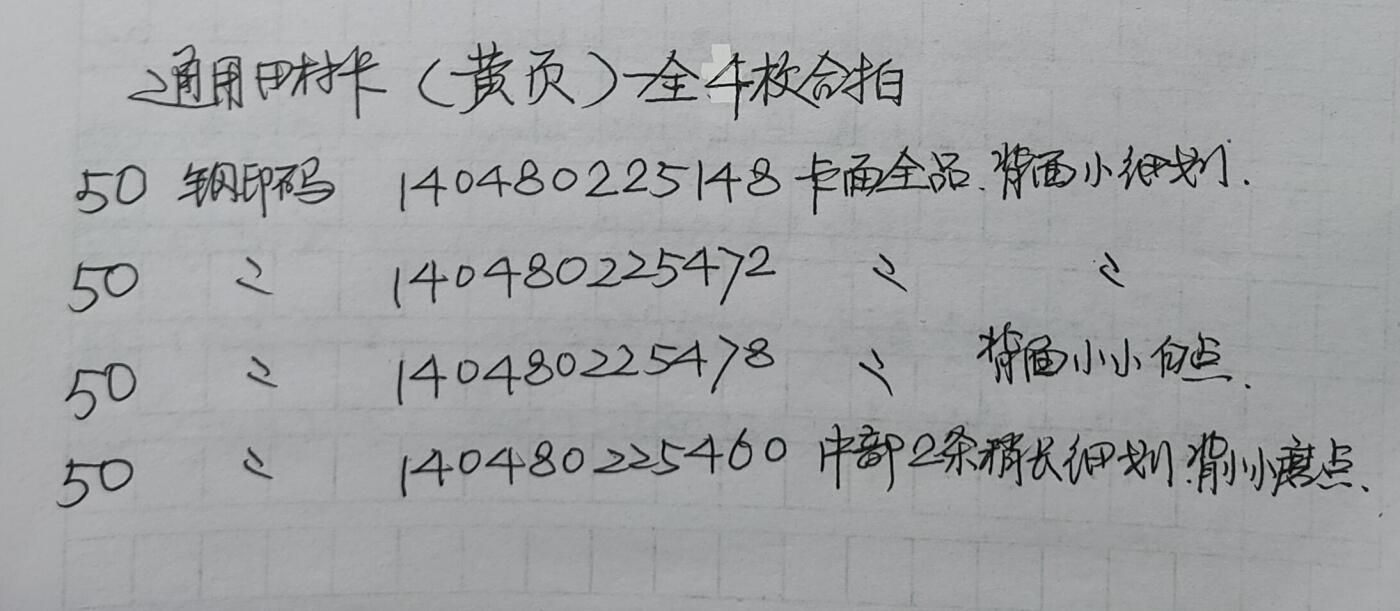 通用田村卡（黄页）一全4枚合拍
50 钢印码 140480225148 卡面全品.背面小细划.
50 〃 140480225472 〃 〃
50 〃 140480225478 〃 背面小小白点.
50 〃 140480225460 中部2条稍长细划.背小小磨点.